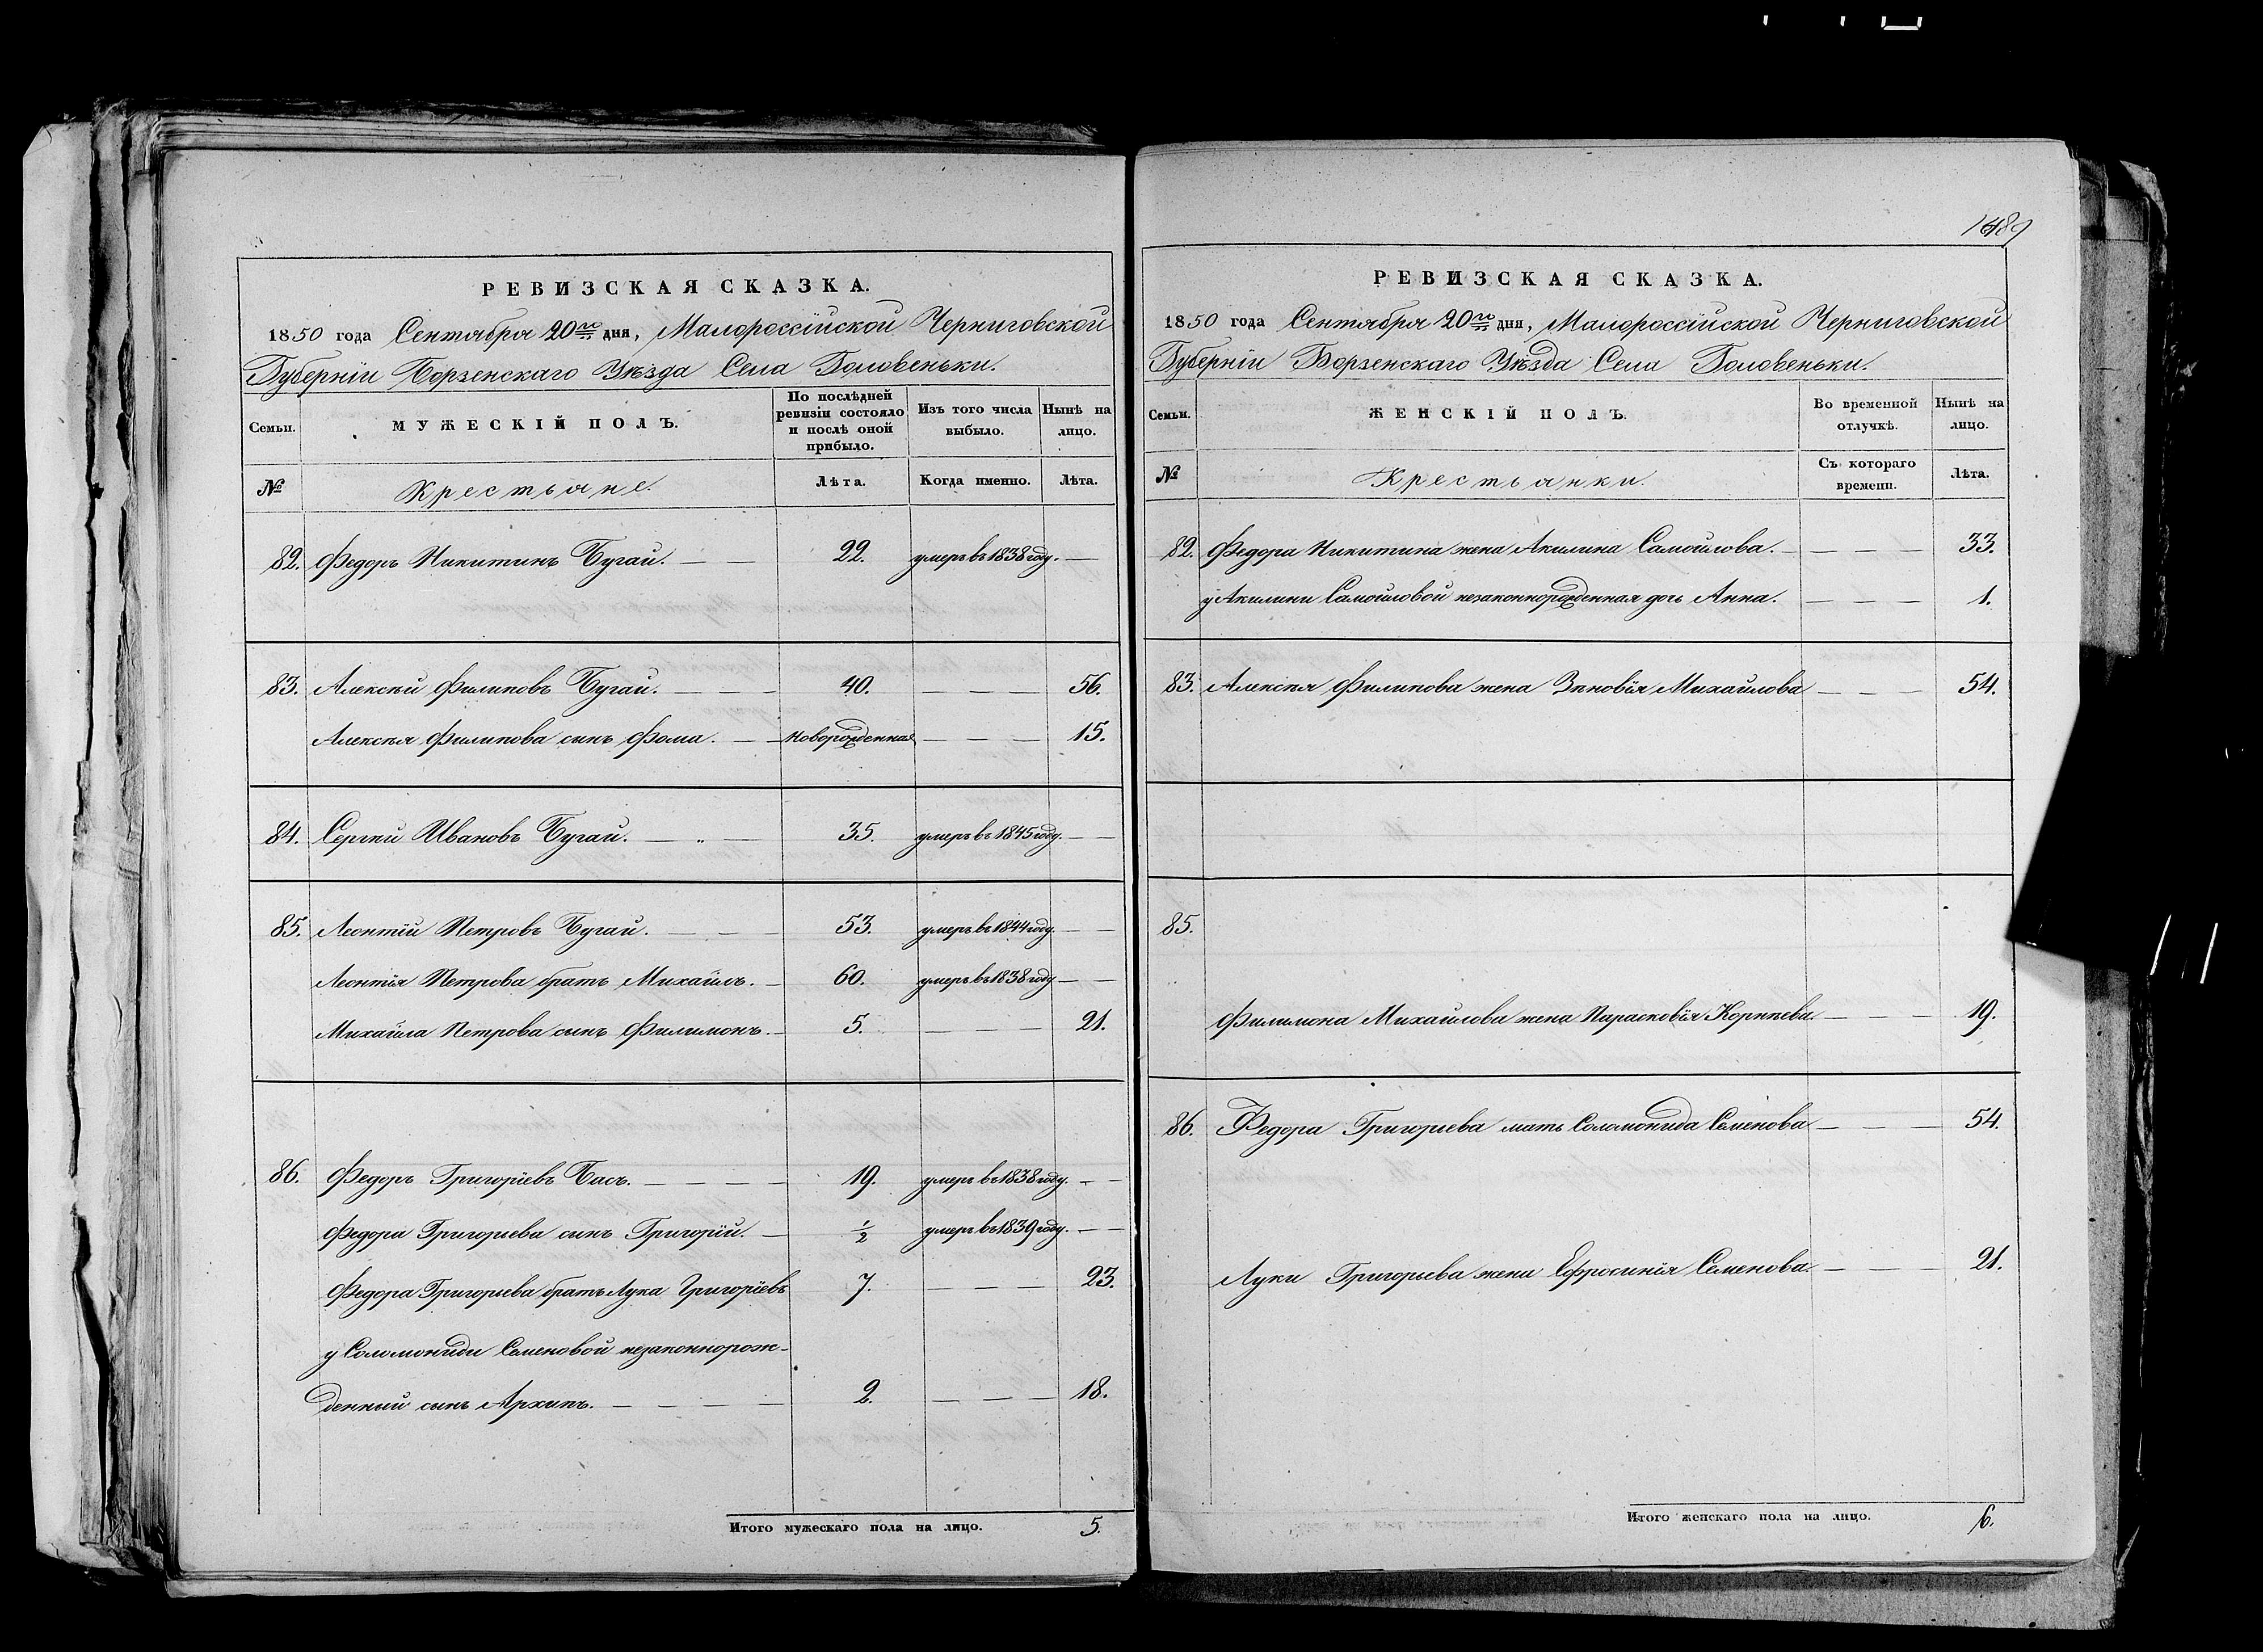 РЕВИЗСКАЯ СКАЗКА.
1850 года Сентября 20го дня, Малороссійской Черниговской
Губерніи Борзенскаго Уѣзда Села Головеньки.
Семьи.
МУЖЕСКІЙ ПОЛЪ.
По послѣдней ревизіи состояло и послѣ оной прибыло.
Изъ того числа выбыло.
Нынѣ на лицо.
№
Крестьяне.
Лѣта.
Когда именно.
Лѣта.
82. Федоръ Никитинъ Бугай. 22. умеръ въ 1838 году.
83. Алексѣй Филиповъ Бугай. 40. 56.
Алексѣя Филипова сынъ Фома. Новорожденная 15.
84. Сергѣй Ивановъ Бугай. 35. умеръ въ 1845 году.
85. Леонтій Петровъ Бугай. 53. умеръ въ 1844 году.
Леонтія Петрова братъ Михайлъ. 60. умеръ въ 1838 году
Михайла Петрова сынъ Филимонъ. 5. 21.
86. Федоръ Григоріевъ Басъ. 19. умеръ въ 1838 году.
Федора Григорьева сынъ Григорій. 1/2 умеръ въ 1839 году.
Федора Григорьева братъ Лука Григоріевъ 7. 23.
у Соломониди Семеновой незаконнорож-
денный сынъ Архипъ. 2. 18.
Итого мужескаго пола на лицо. 5.
РЕВИЗСКАЯ СКАЗКА.
1850 года Сентября 20го дня, Малороссійской Черниговской
Губерніи Борзенскаго Уѣзда Села Головеньки.
Семьи.
ЖЕНСКІЙ ПОЛЪ.
Во временной отлучкѣ.
Нынѣ на лицо.
№
Крестьянки.
Съ котораго времени.
Лѣта.
82. Федора Никитина жена Акилина Самойлова. 33.
у Акилини Самойловой незаконнорожденная дочь Анна. 1.
83. Алексѣя Филипова жена Зѣновія Михайлова 54.
85.
Филимона Михайлова жена Парасковія Корнѣева. 19.
86. Федора Григорьева мать Соломонида Семенова 54.
Луки Григорьева жена Ефросинія Семенова. 21.
Итого женскаго пола на лицо. 6.